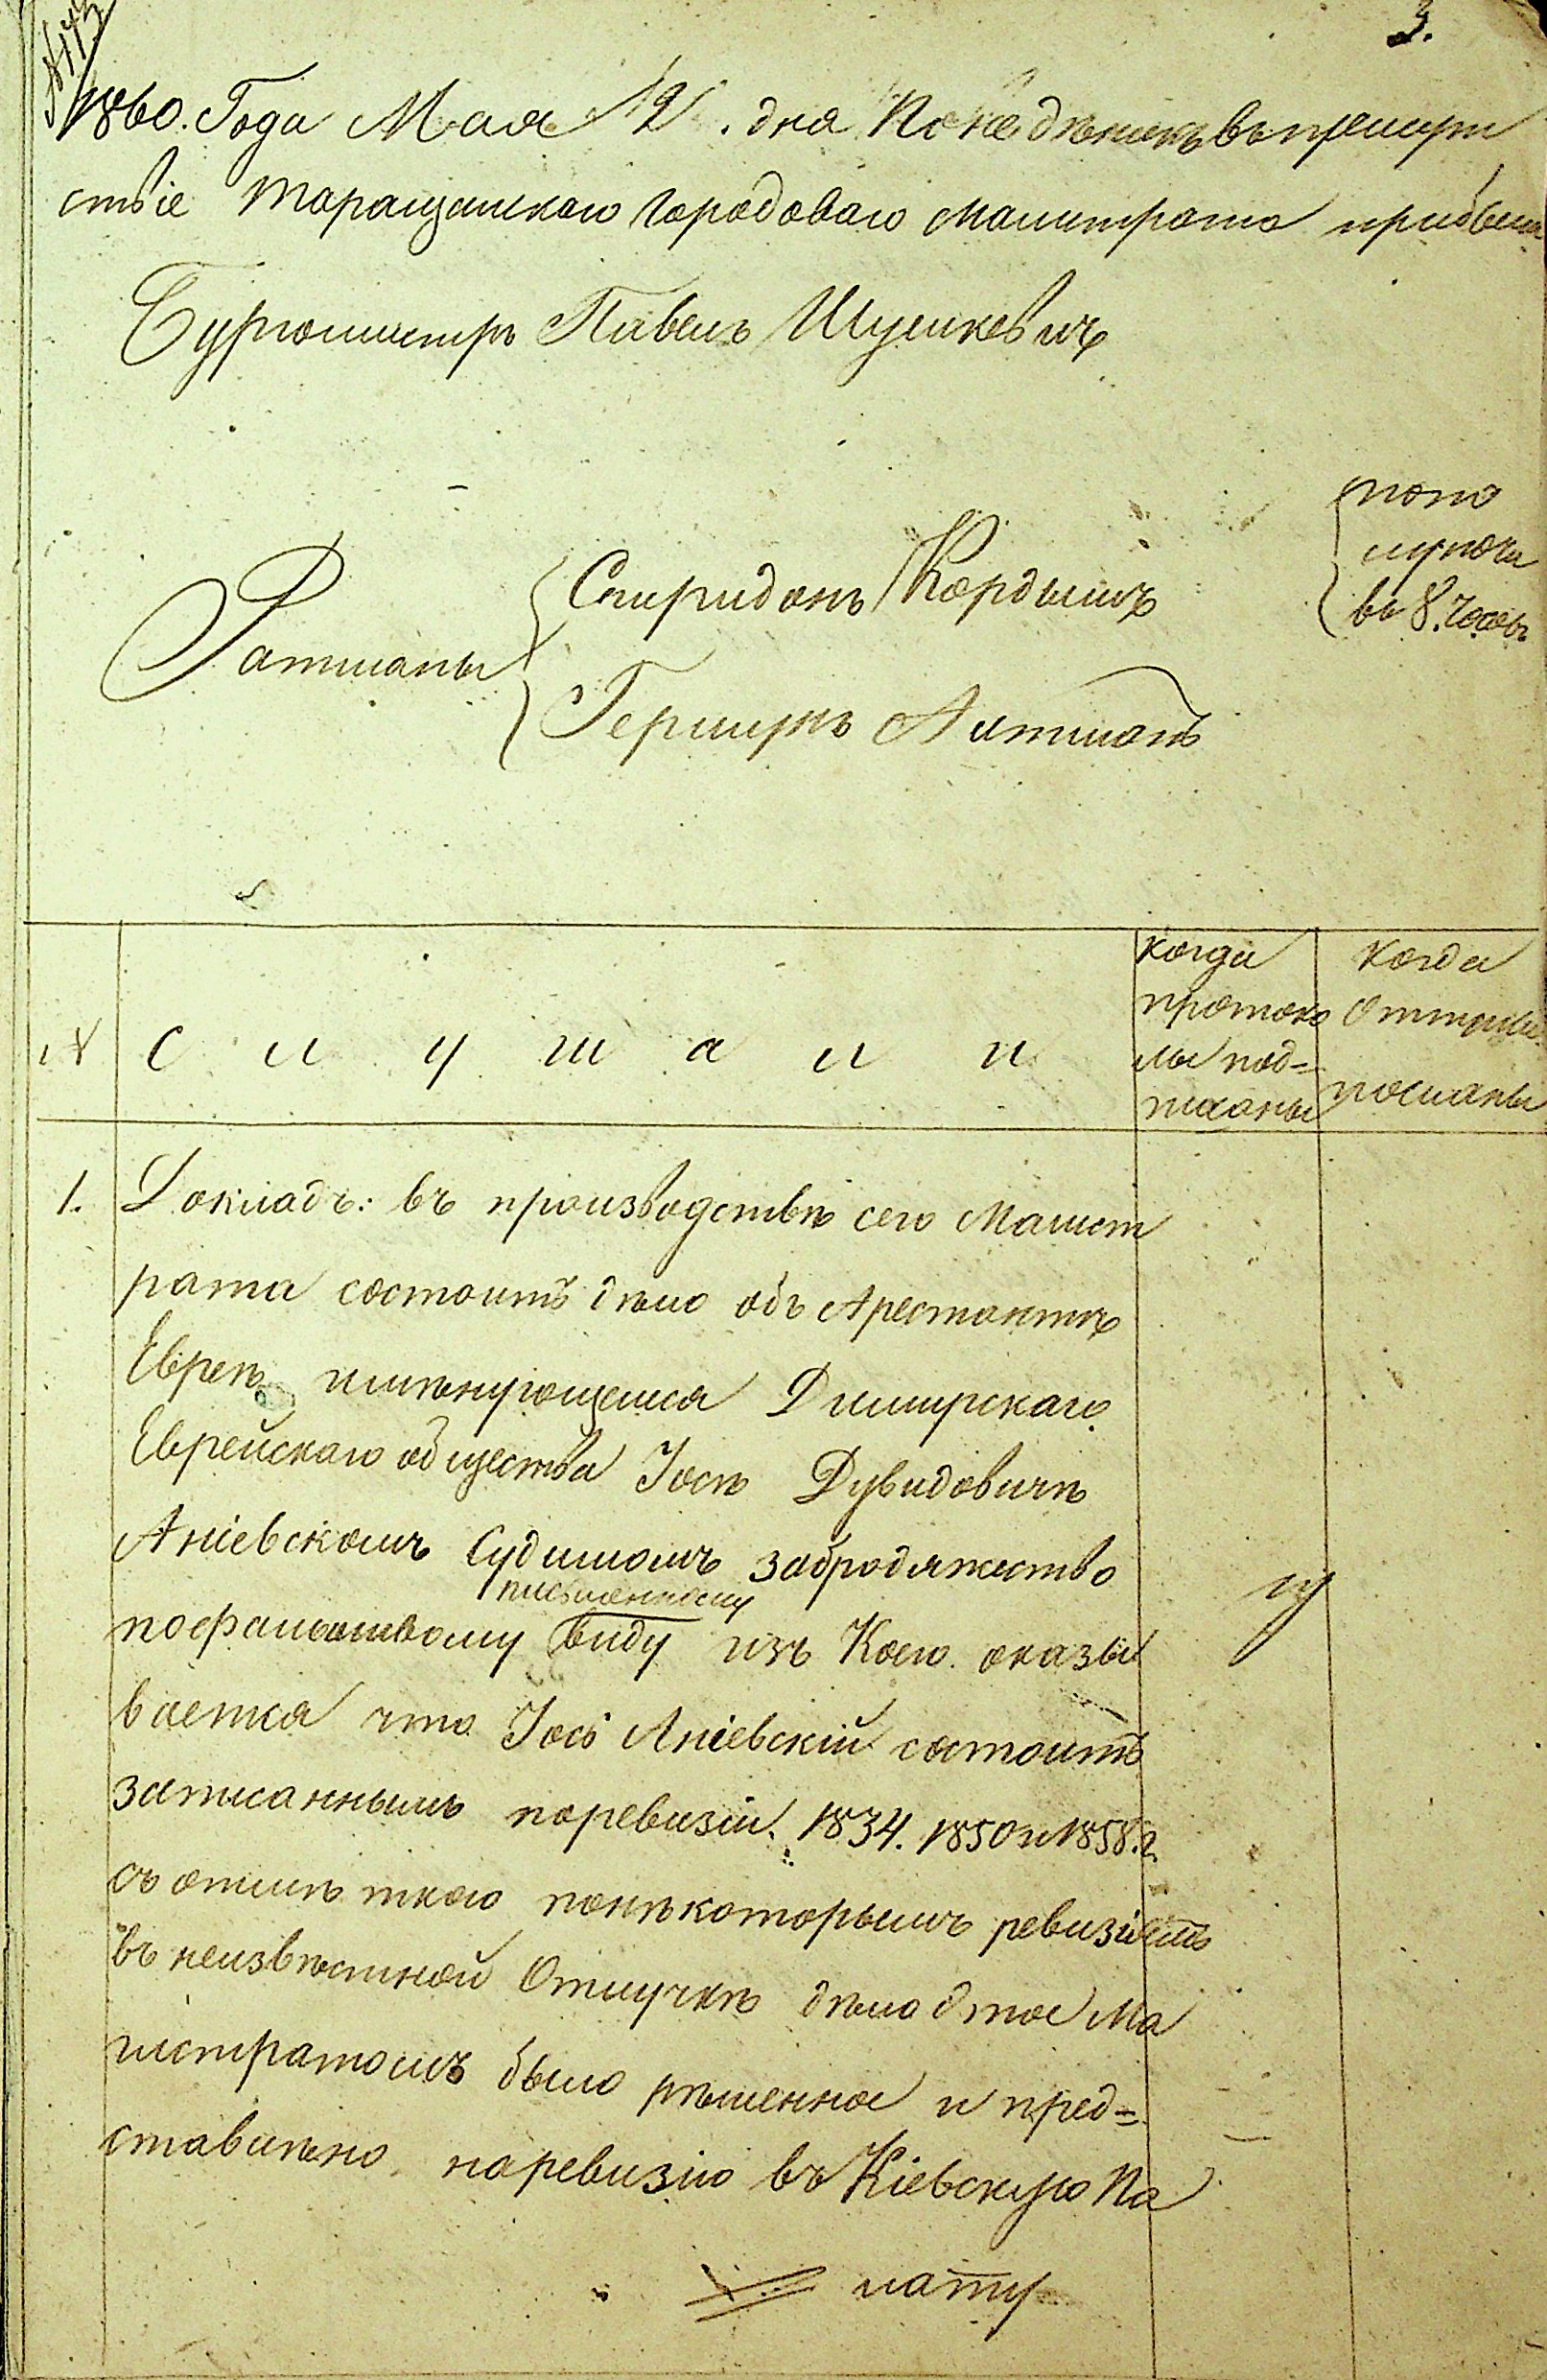 3.
1860. Года Мая 12. дня Понедѣникъ въ присут
ствіе Таращанскаго Городоваго Магистрата прибыли
Бургомистръ Павелъ Шулькевичъ
Ратманы
Спиридонъ Кордышъ
Гершукъ Алтманъ
попо
луночи
въ 8. часовъ
№ слушали
когда
протоко
лы под=
писаны
Когда
посланы
1. Докладъ: въ производствѣ сего Магист
рата состоитъ дѣло объ Арестантѣ
Евреѣ именующемся Димирскаго
Еврейскаго общества Іосѣ Дувидовичѣ
Аніевскомъ Судимомъ забродяжество
письменному
пофальшивому виду изъ Коего оказы
вается что Іось Аніевскій состоитъ
записаннымъ поревизіи 1834. 1850 и 1858. г.
съ отмѣткою понѣкоторымъ ревизіямъ
въ неизвѣстной Отлучкѣ дѣло Это Ма
гистратомъ было рѣшенное и пред=
ставлѣно наревизію въ Кіевскую Па
лату